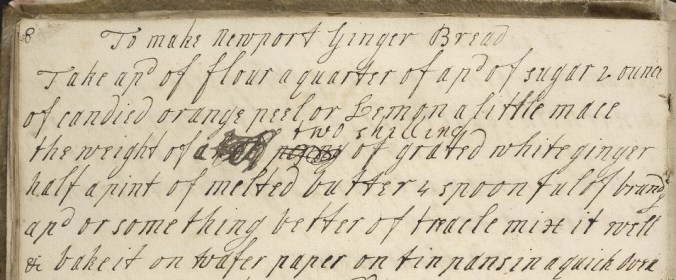 8 To make Newport Ginger Bread
Take a pd of flour a quarter of a pd of sugar 2 ounce
of candied orange peel or Lemon a little mace
two shilling
the weight of a of grated white ginger
half a pint of melted butter 4 spoonful of brandy
a pd or something better of treacle mix it well
& bake it on wafer paper on tin pans in a quick oven